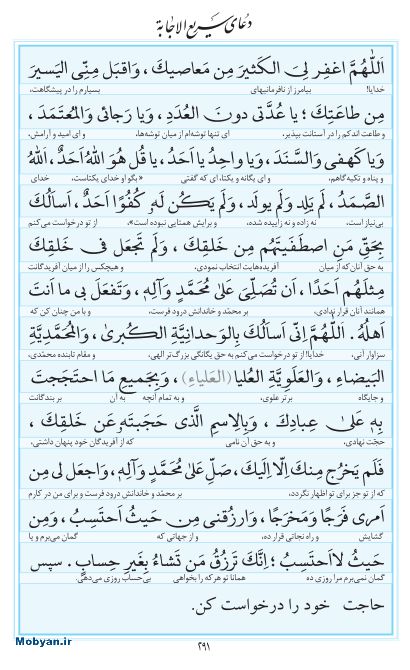 دعای سریع الاجابة
اَللّٰهُمَّ اغفِر لِیَ الکَثیرَ مِن مَعاصیكَ، وَاقبَل مِنِّی الیَسیرَ
خدایا! بیامرز از نافرمانیهای بسیارم را در پیشگاهت،
مِن طاعَتِكَ؛ یا عُدَّتی دونَ العُدَدِ، وَیا رَجائی وَالمُعتَمَدَ،
و طاعت اندکم را در آستانت بپذیر، ای تنها توشه‌ام از میان توشه‌ها، و ای امید و آرامش،
وَیا کَهفی وَالسَّنَدَ، وَیا واحِدُ یا اَحَدُ، یا قُل هُوَ اللّٰهُ اَحَدٌ، اَللّٰهُ
و پناه و تکیه گاهم، و ای یگانه و یکتا، ای که گفتی «بگو او خدای یکتاست، خدای
الصَّمَدُ، لَم یَلِد وَلَم یولَد، وَلَم یَکُن لَهُ کُفُوًا اَحَدٌ، اَسأَلُكَ
بی‌نیاز است. نه زاده و نه زاییده شده، و برایش همتایی نبوده است»، از تو درخواست می‌کنم
بِحَقِّ مَنِ اصطَفَیتَهُم مِن خَلقِكَ، وَلَم تَجعَل فی خَلقِكَ
به حق آنان که از میان آفریده‌هایت انتخاب نمودی، و هیچکس را از میان آفریدگانت
مِثلَهُم اَحَدًا، اَن تُصَلِّیَ عَلیٰ مُحَمَّدٍ وَآلِهِ، وَتَفعَلَ بی ما اَنتَ
همانند آنان قرار ندادی، بر محمّد و خاندانش درود فرست، و با من چنان کن که
اَهلُهُ. اَللّٰهُمَّ اِنّی اَسأَلُكَ بِالوَحدانِیَّةِ الکُبریٰ، وَالمُحَمَّدِیَّةِ
سزاوار آنی. خدایا! از تو درخواست می‌کنم به حق یگانگی بزرگ‌تر الهی، و مقام تابنده محمّدی،
البَیضاءِ، وَالعَلَوِیَّةِ العُلیا (العَلیاءِ)، وَبِجَمیعِ مَا احتَجَجتَ
و جایگاه برتر علوی، و به تمام آنچه به آن بر بندگانت
بِهِ عَلیٰ عِبادِكَ، وَبِالاِسمِ الَّذی حَجَبتَهُ عَن خَلقِكَ،
حجّت نهادی، و به حق آن نامی که از آفریدگان خود پنهان داشتی،
فَلَم یَخرُج مِنكَ اِلّا اِلَیكَ، صَلِّ عَلیٰ مُحَمَّدٍ وَآلِهِ، وَاجعَل لی مِن
که از تو جز برای تو اظهار نگردد، بر محمّد و خاندانش درود فرست و برای من در کارم
اَمری فَرَجًا وَمَخرَجًا، وَارزُقنی مِن حَیثُ اَحتَسِبُ، وَمِن
گشایش و راه نجاتی قرار ده، و از جهاتی که گمان می‌برم و یا
حَیثُ لا اَحتَسِبُ؛ اِنَّكَ تَرزُقُ مَن تَشاءُ بِغَیرِ حِسابٍ. سپس
گمان نمی‌برم مرا روزی ده همانا تو هر که را بخواهی بی‌حساب روزی می‌دهی.
حاجت خود را درخواست کن.
Mobyan.ir
۲۹۱